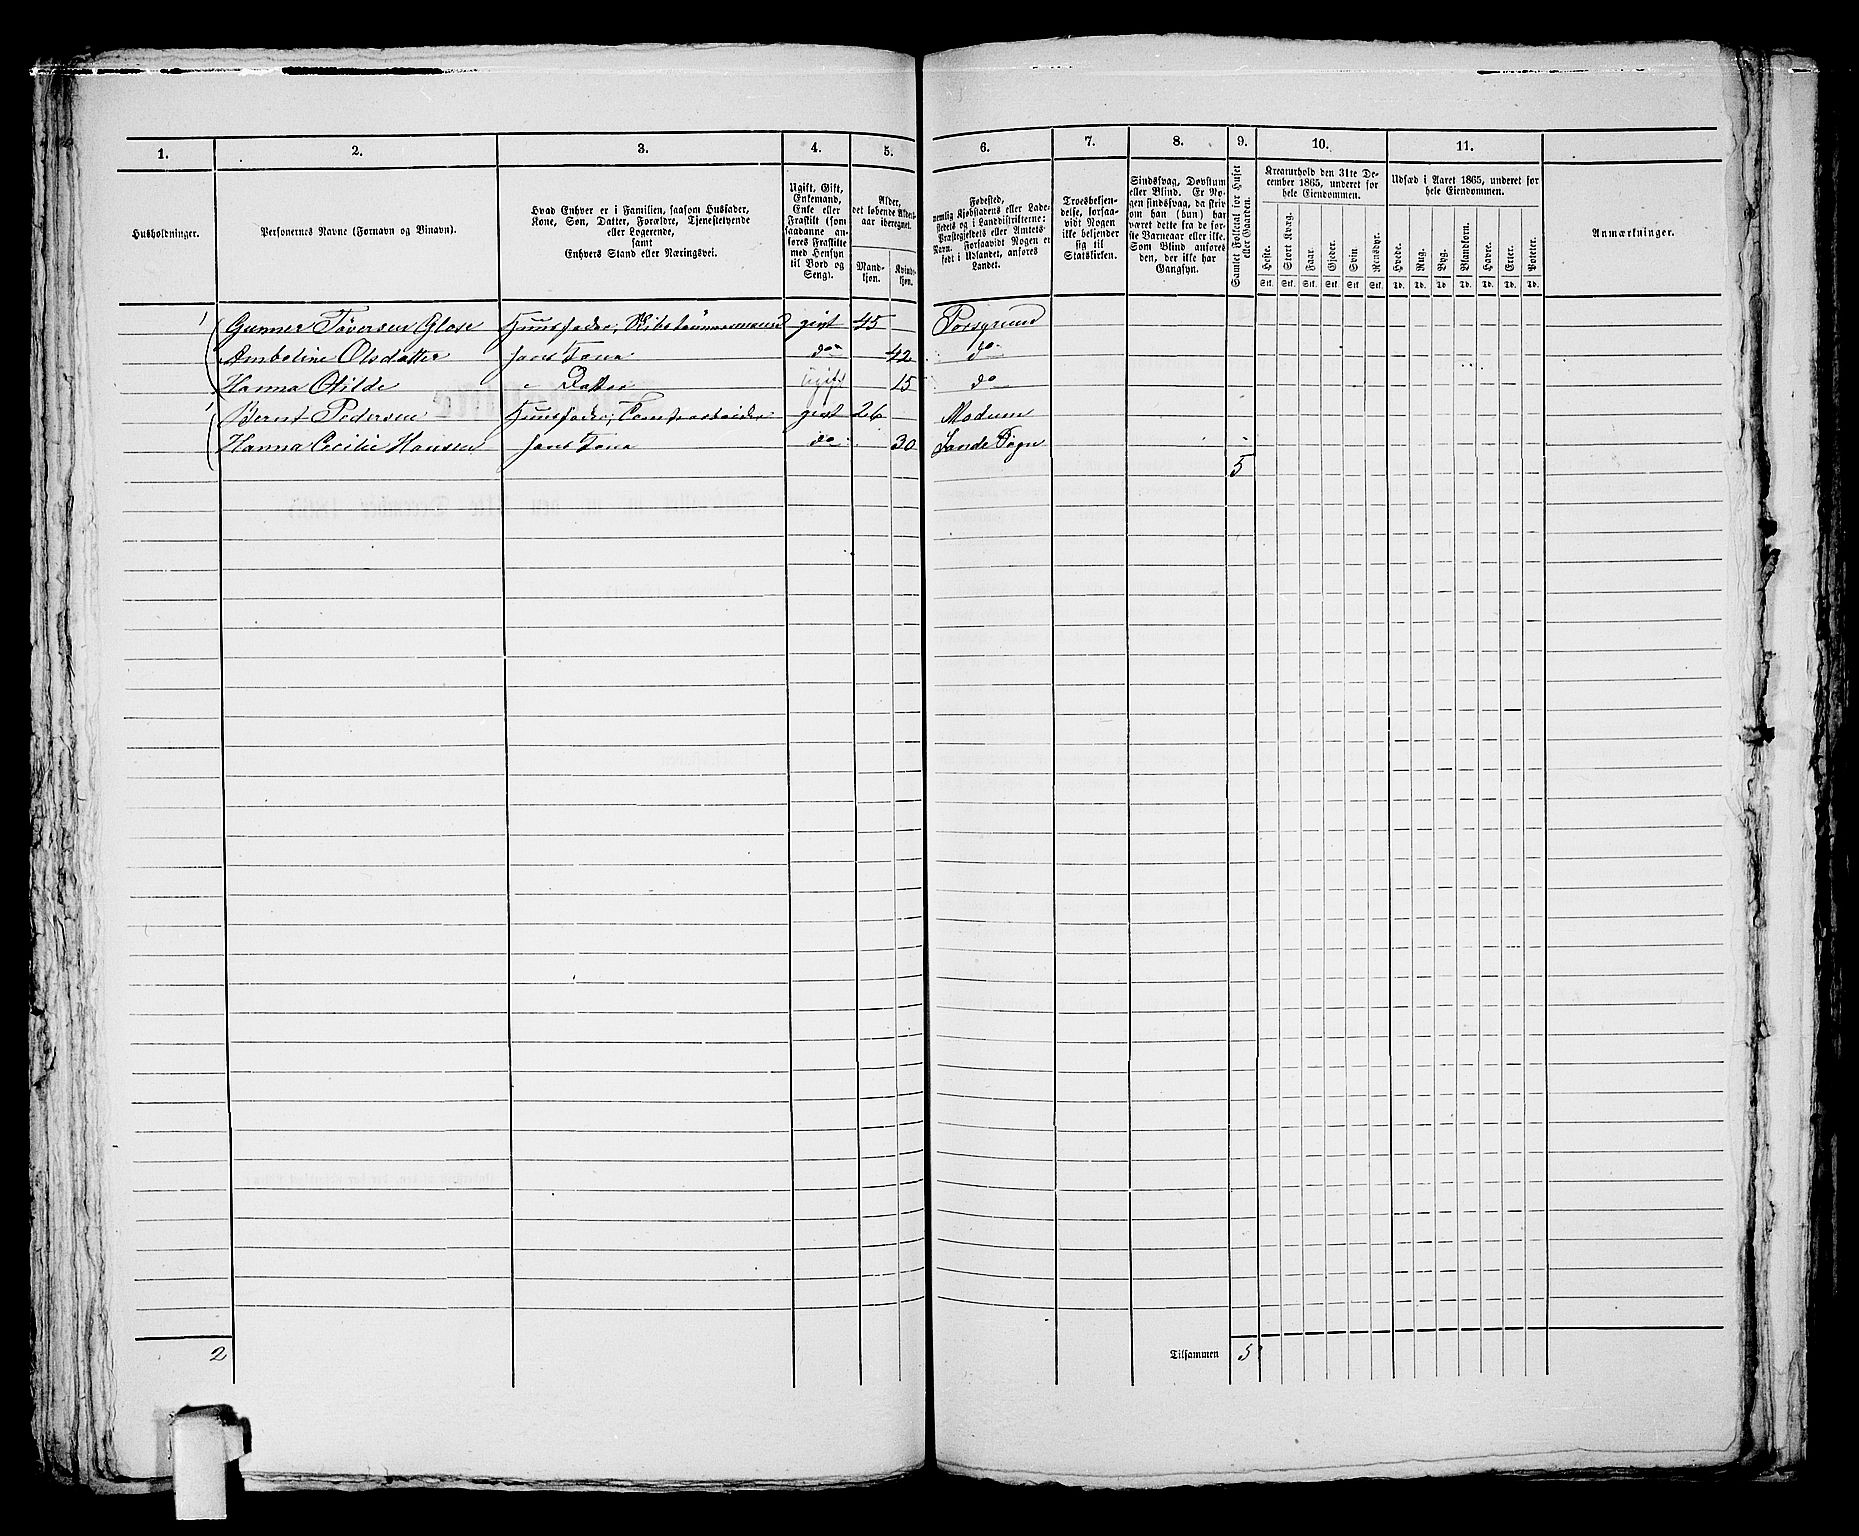 1. 2. 3. 4. 5. 6. 7. 8. 9. 10. 11.
Husholdninger.
Personernes Navne (Fornavn og Binavn).
Hvad Enhver er i Familien, saasom Husfader,
Kone, Søn, Datter, Forældre, Tjenestetyende
eller Logerende,
samt
Enhvers Stand eller Næringsvei.
Ugift, Gift,
Enkemand,
Enke eller
Fraskilt (som
saadanne an-
føres Fraskilte
med Hensyn
til Bord og
Seng).
Alder,
det løbende Alders-
aar iberegnet.
Mand-
kjøn.
Kvind-
kjøn.
Fødested,
nemlig Kjøbstadens eller Lade-
stedets og i Landdistrikterne:
Præstegjeldets eller Amtets
Navn. Forsaavidt Nogen er
født i Udlandet, anføres
Landet.
Troesbekjen-
delse, forsaa-
vidt Nogen
ikke bekjender
sig til
Statskirken.
Sindssvag, Døvstum
eller Blind. Er No-
gen sindssvag, da skriv
om han (hun) har
været dette fra de før-
ste Barneaar eller ikke.
Som Blind anføres
den, der ikke har
Gangsyn.
Samlet Folketal for Huset
eller Gaarden.
Kreaturhold den 31te De-
cember 1865, underet for
hele Eiendommen.
Heste. Stort Kvæg. Faar. Gjeder. Svin Rensdyr.
Stk. Stk. Stk. Stk. Stk. Stk.
Udsæd i Aaret 1865, underet for
hele Eiendommen.
Hvede. Rug. Byg. Blandkorn. Havre. Erter. Poteter.
Td. Td. Td. Td. Td. Td. Td.
Anmærkninger.
1 Gunner Tøversen Glose Huusfader, Skibstømmermand gift 45 Porsgrund
Ambeline Olsdatter hans Kona do 42 do
Hanna Otilde " Datter ugift 15 do
1 Bernt Pedersen Huusfader, gift 26 Modum
Hanna Cecilie Hansen hans Kona do 30 Sande Sogn
5
2 Tilsammen 5